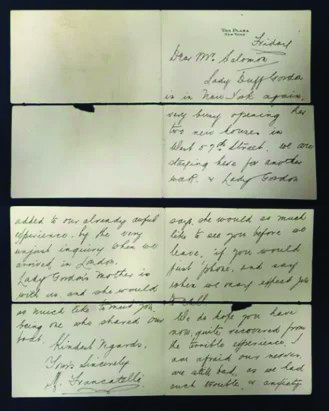 The Plaza
New York
Friday
Dear Mr. Salomon
Lady Duff Gordon
is in New York again,
very busy opening her
two new houses in
West 57th Street. we are
staying here for another
week, & Lady Gordon
says, she would so much
like to see you before we
leave, if you would
just phone, and say
when we may expect you
We do hope you have
now, quite recovered from
the terrible experience, I
am afraid our nerves,
are still bad, as we had
such trouble, & anxiety
added to our already awful
experience, by the very
unjust inquiry when we
arrived in London.
Lady Gordon's mother is
with us and she would
so much like to meet you,
being one who shared our
boat. Kindest Regards.
Yours Sincerely
Francatelli